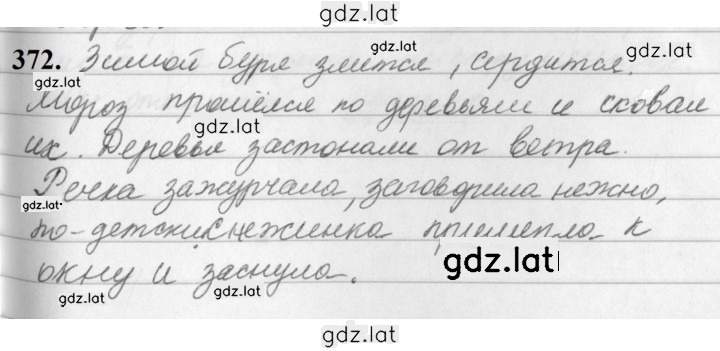 gdz.lat
372. Зимой буря злится, сердится.
gdz.lat
gdz.lat
gdz.lat
Мороз прошёлся по деревьям и сковал
gdz.lat
их. Деревья застонали от ветра.
gdz.lat
Речка зажурчала, заговорила нежно,
gdz.lat
по-детски. Снежинка прилипла к
gdz.lat
окну и заснула.
gdz.lat
gdz.lat
gdz.lat